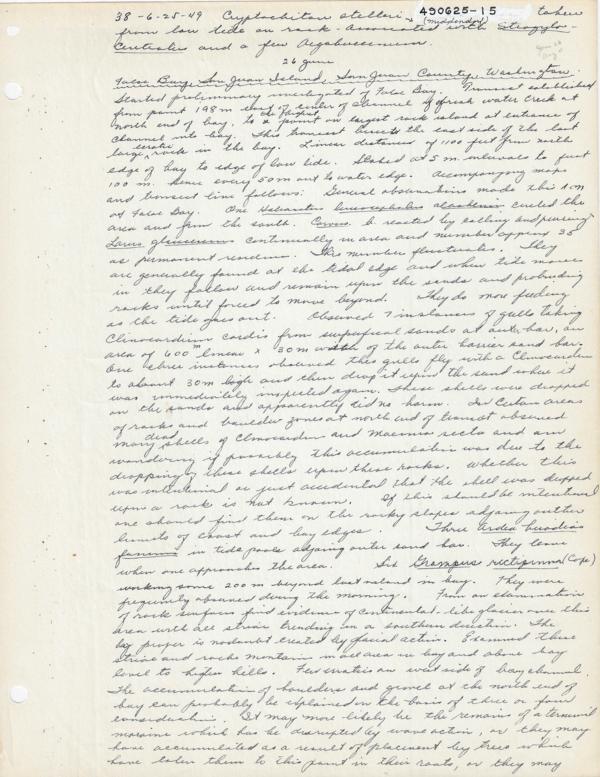 38-6-25-49 Cryptochiton stelleri (Middendorf) 490625-15 taken
from low tide on rock. Associated with Strongylo-
Centrotus and a few
26 June
False Bay, San Juan Island, San Juan County, Washington.
Started preliminary investigation of False Bay. Transect established
from point 198m east of center of channel of fresh water creek at
north end of bay, to the farthest point on largest rock island at entrance of
channel into bay. This transect bisects the east side of the last
large erratic rock in the bay. Linear distance of 1100 feet from north
edge of bay to edge of low tide. Staked at 5m intervals to first
100 m. hence every 50m out to water edge. Accompanying maps
and transect line follows. General observations made this am
at False Bay. One Haliaeetus leucocephalus circled the
area and from the south. Corvus b. reacted by calling and pursuing.
Larus glaucescens continually in area and number approx 35
as permanent residence. This number fluctuates. They
are generally found at the tidal edge and when tide moves
in they follow and remain upon the sands and protruding
rocks until forced to move beyond. They do most feeding
as the tide goes out. Observed 7 instances of gulls taking
Clinocardium cordis from superficial sands at outer bar, an
area of 600m linear x 30m width of the outer barrier sand bar.
One three instances observed this gulls fly with a Clinocardium
to about 30m high and then drop it upon the sand where it
was immediately inspected again. These shells were dropped
on the sands and apparently did no harm. In certain areas
of rocks and boulder zones at north end of transect observed
many dead shells of Clinocardium and Macoma secta and am
wondering if possibly this accumulation was due to the
dropping of these shells upon these rocks. Whether this
was intentional or just accidental that the shell was dropped
upon a rock is not known. If this should be intentional
one should find them on the rocky slopes adjoining outer
limits of coast and bay edges. Three Ardea herodias
fannini in tide pools adjoining outer sand bar. They leave
when one approaches the area. Six Grampus rectipinna (Cope)
working some 200m beyond last island in bay. They were
frequently observed during the morning. From an examination
of rock surfaces find evidence of continental-like glacier over this
area with all striae trending in a southern direction. The
bay proper is no doubt created by glacial action. Examined these
striae and roche moutonn in all area in bay and above bay
level to higher hills. Few erratics on west side of bay channel.
The accumulation of boulders and gravel at the north end of
bay can probably be explained on the basis of three or four
considerations. It may more likely be the remains of a terminal
moraine which has be disrupted by wave action, or they may
have accumulated as a result of placement by trees which
have taken them to this point in their roots, or they may